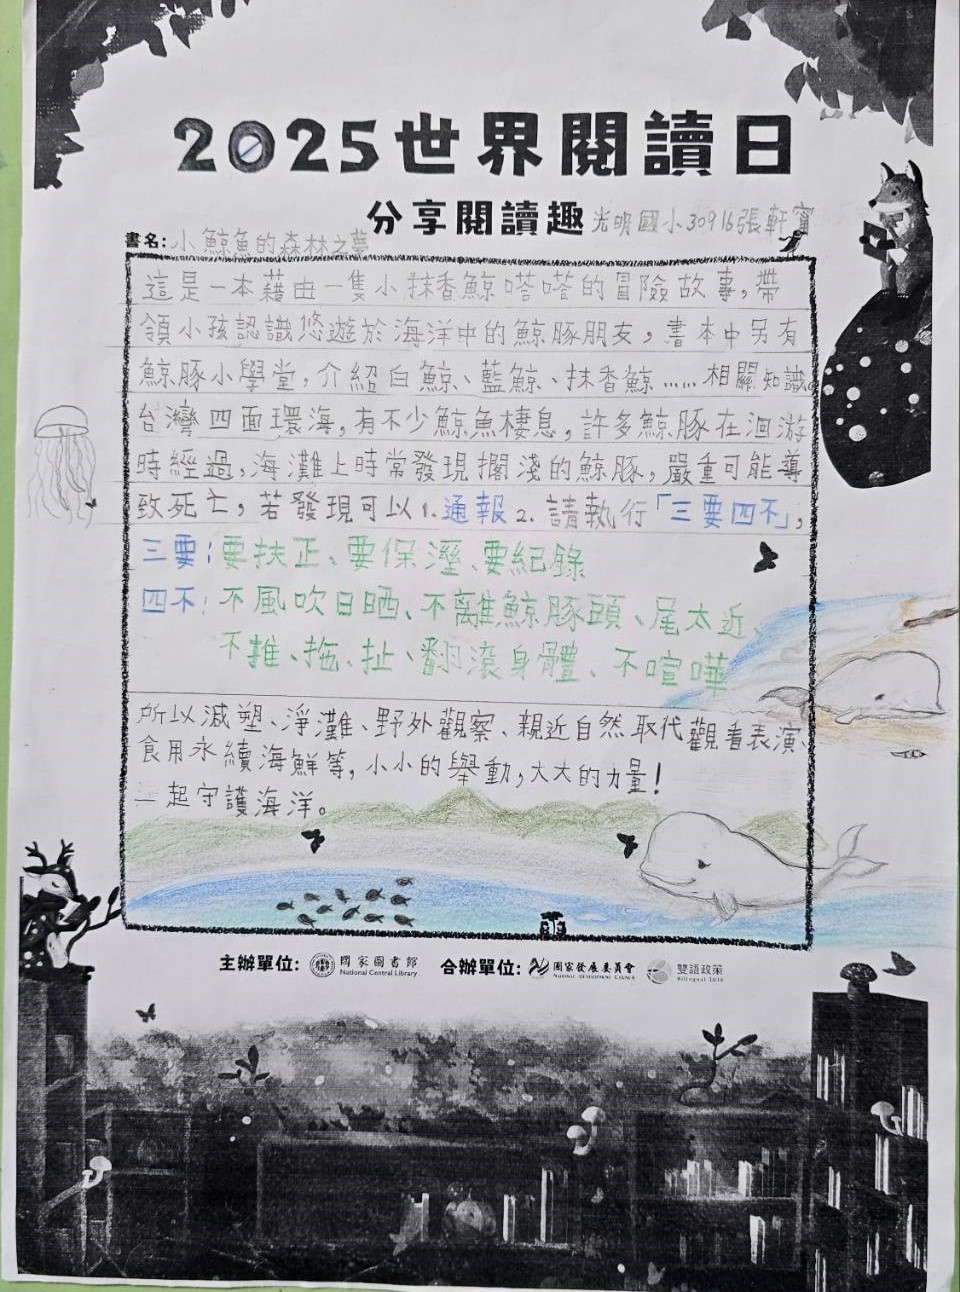 2025世界閱讀日
分享閱讀趣 光明國小30916張軒甯
書名:小鯨魚的森林之夢
這是一本藉由一隻小抹香鯨嗒嗒的冒險故事,帶
領小孩認識悠遊於海洋中的鯨豚朋友,書本中另有
鯨豚小學堂,介紹白鯨、藍鯨、抹香鯨......相關知識。
台灣四面環海,有不少鯨魚棲息,許多鯨豚在洄游
時經過,海灘上時常發現擱淺的鯨豚,嚴重可能導
致死亡,若發現可以1.通報2.請執行「三要四不」,
三要:要扶正、要保溼、要紀錄
四不:不風吹日晒、不離鯨豚頭、尾太近、
不推、拖、扯、翻滾身體、不喧嘩
所以減塑、淨灘、野外觀察、親近自然取代觀看表演、
食用永續海鮮等,小小的舉動,大大的力量!
一起守護海洋。
主辦單位: 國家圖書館 合辦單位: 國家發展委員會 雙語政策
National Central Library NATIONAL DEVELOPMENT COUNCIL Bilingual 2030